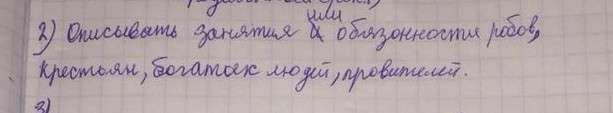 2) Описывать занятия или обязонности робов,
крестьян, богатых людей, провителей.
3)